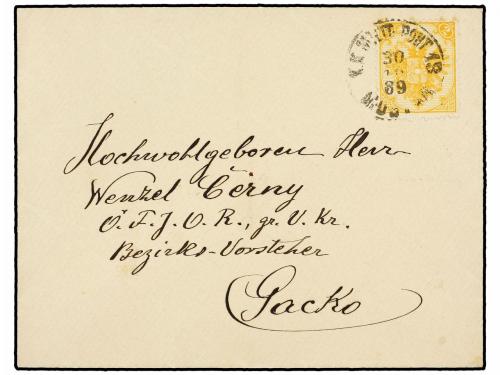 K.K. MILIT. POST 13
30
89
Hochwohlgeboren Herr
Wenzel Černy
Ö. F. J. O. R., gr. V. Kr.
Bezirks-Vorsteher
Gacko